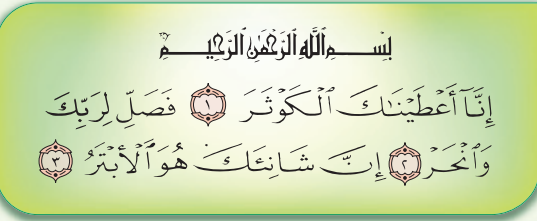 بِسْمِ ٱللَّهِ ٱلرَّحْمَٰنِ ٱلرَّحِيمِ
إِنَّآ أَعْطَيْنَٰكَ ٱلْكَوْثَرَ ١ فَصَلِّ لِرَبِّكَ
وَٱنْحَرْ ٢ إِنَّ شَانِئَكَ هُوَ ٱلْأَبْتَرُ ٣